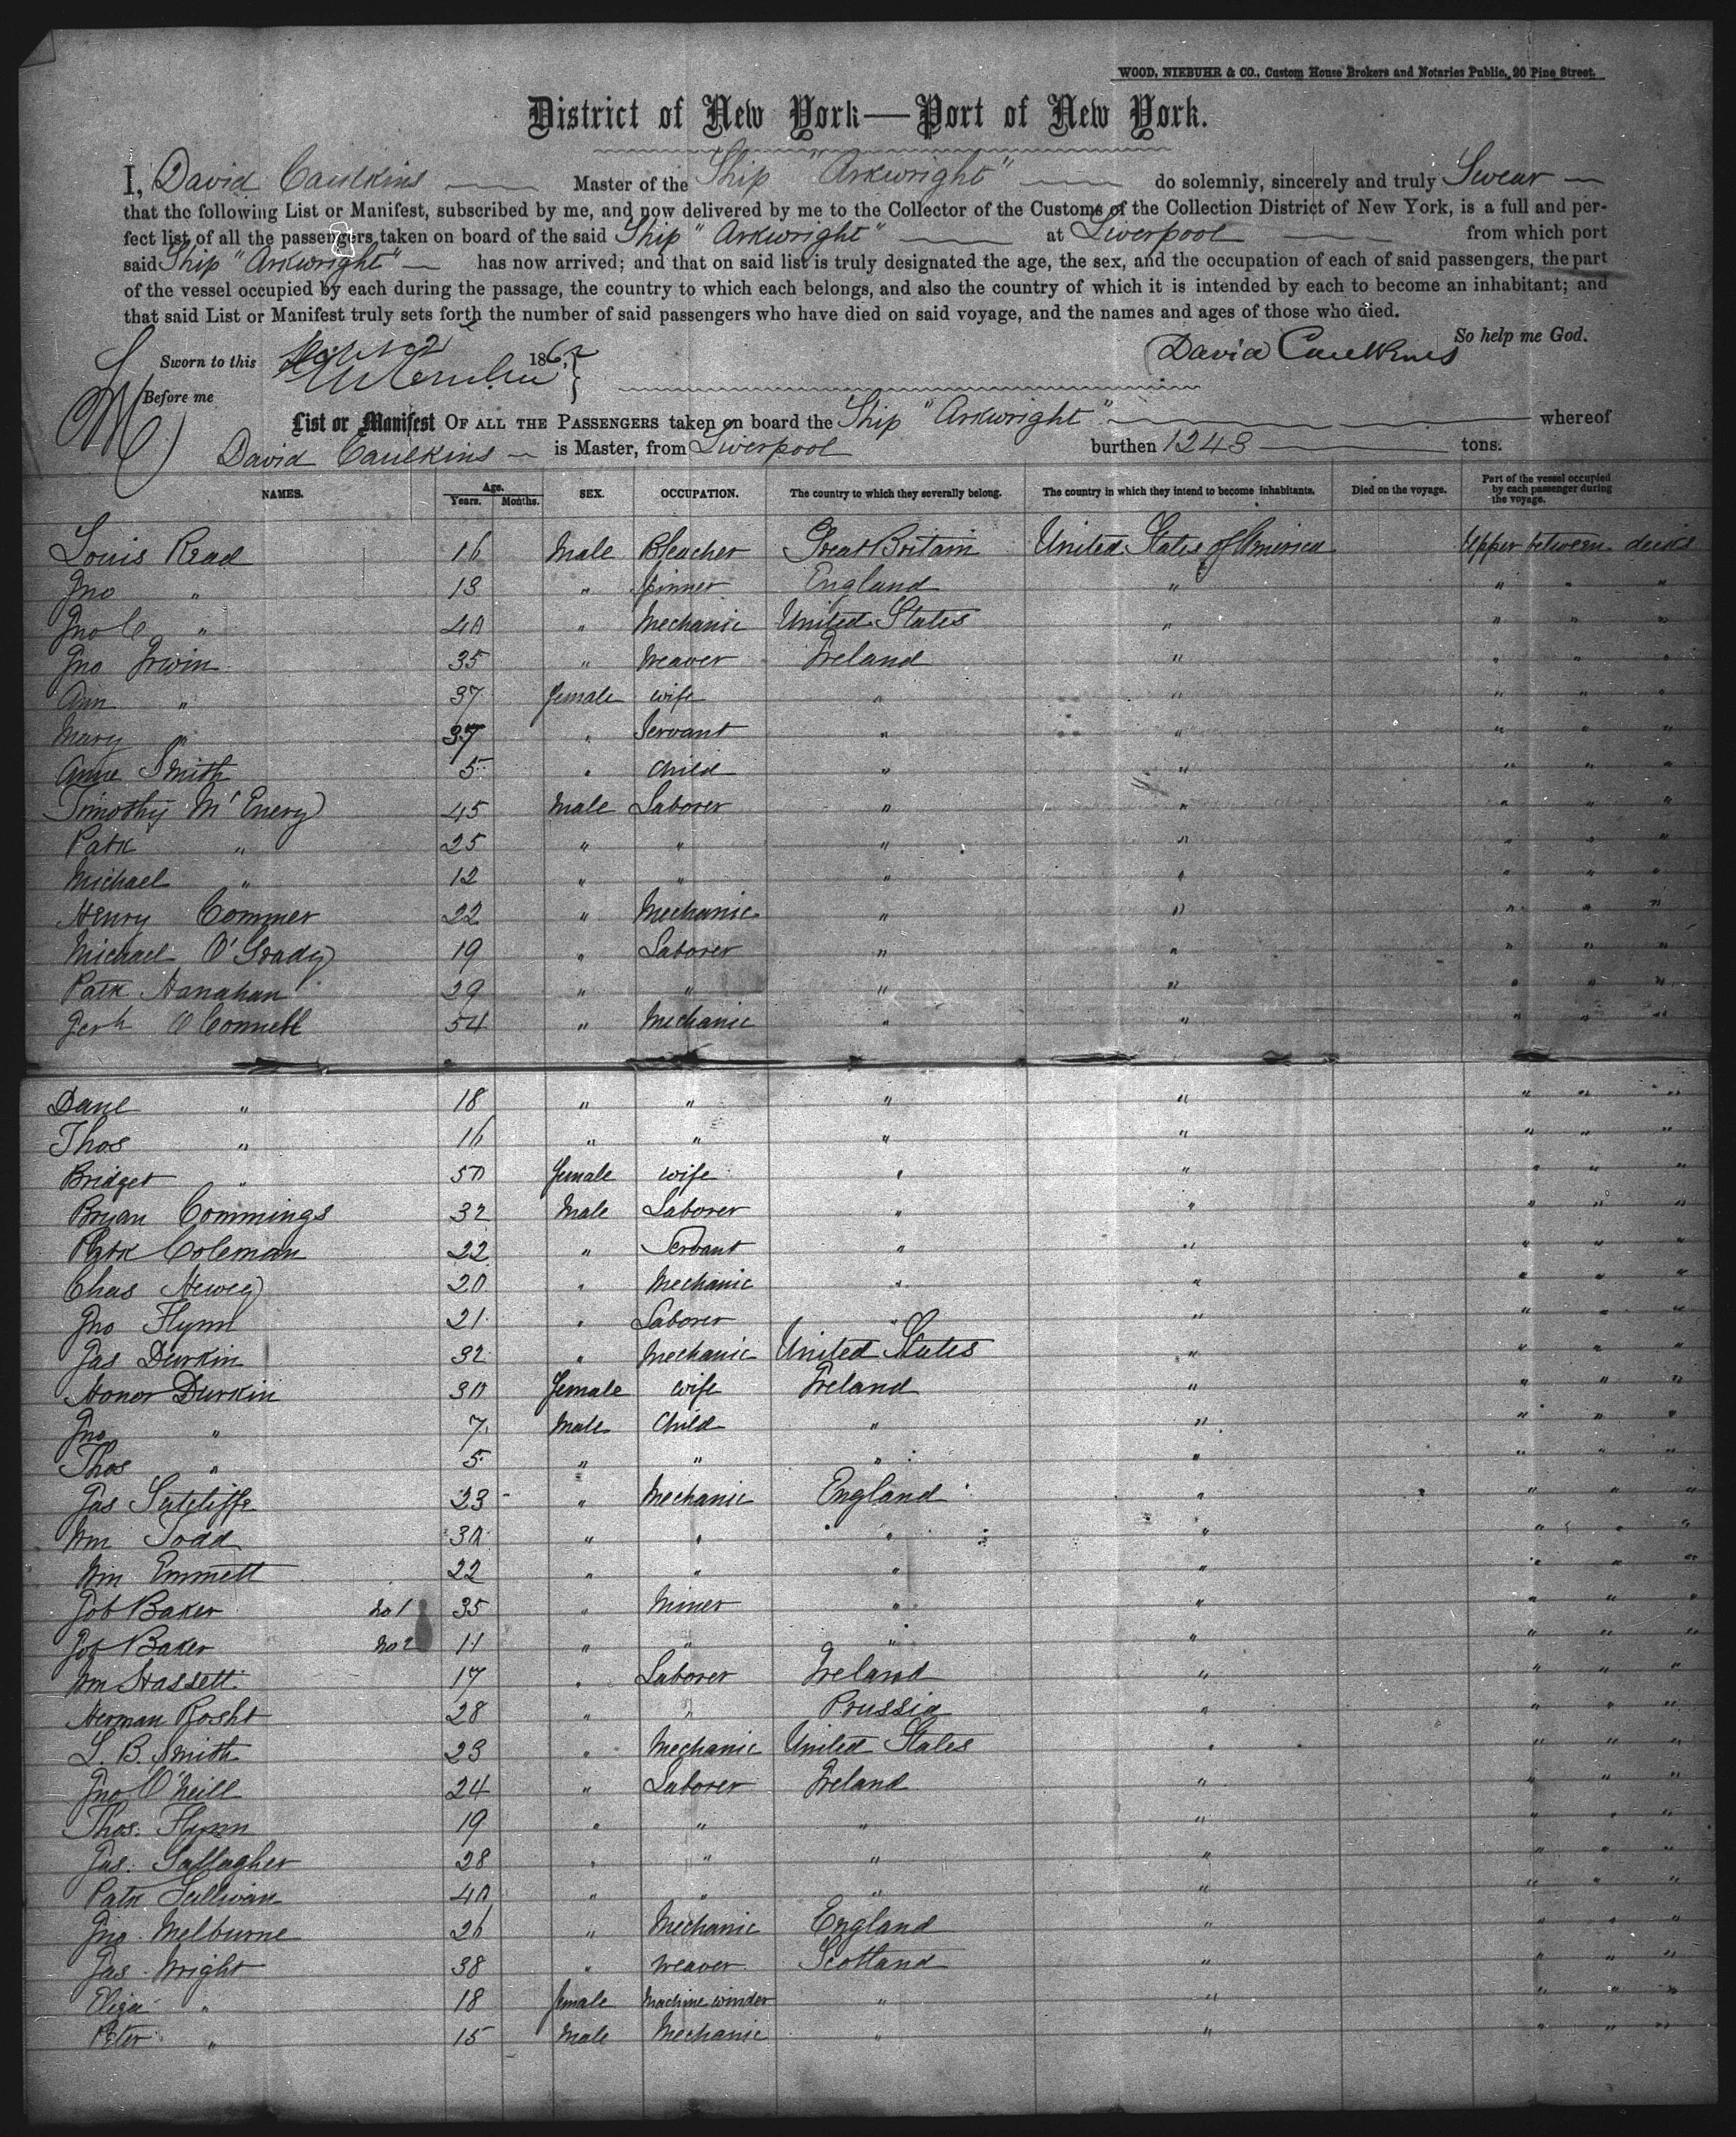 WOOD, NIEBUHR & CO., Custom House Brokers and Notaries Public, 20 Pine Street.
District of New York—Port of New York.
I, David Caulkins Master of the Ship "Arkwright" do solemnly, sincerely and truly Swear
that the following List or Manifest, subscribed by me, and now delivered by me to the Collector of the Customs of the Collection District of New York, is a full and per-
fect list of all the passengers taken on board of the said Ship "Arkwright" at Liverpool from which port
said Ship "Arkwright" has now arrived; and that on said list is truly designated the age, the sex, and the occupation of each of said passengers, the part
of the vessel occupied by each during the passage, the country to which each belongs, and also the country of which it is intended by each to become an inhabitant; and
that said List or Manifest truly sets forth the number of said passengers who have died on said voyage, and the names and ages of those who died.
So help me God.
Sworn to this 186 David Caulkins
Before me
List or Manifest OF ALL THE PASSENGERS taken on board the Ship "Arkwright" whereof
David Caulkins is Master, from Liverpool burthen 1243 tons.
NAMES. Age. Years. Months. SEX. OCCUPATION. The country to which they severally belong. The country in which they intend to become inhabitants. Died on the voyage. Part of the vessel occupied by each passenger during the voyage.
Louis Read 16 Male Bleacher Great Britain United States of America Upper between decks
Jno " 13 " Spinner England " " " "
Jno C " 40 " Mechanic United States " " " "
Jno Irwin 35 " Weaver Ireland " " " "
Ann " 37 female wife " " " " "
Mary " 37 " Servant " " " " "
Anne Smith 5 " Child " " " " "
Timothy McEnery 45 Male Laborer " " " " "
Patk " 25 " " " " " " "
Michael " 12 " " " " " " "
Henry Commer 22 " Mechanic " " " " "
Michael O'Grady 19 " Laborer " " " " "
Patk Hanahan 29 " " " " " " "
Jerh O Connell 54 " Mechanic " " " " "
Danl " 18 " " " " " " "
Thos " 16 " " " " " " "
Bridget " 50 female wife " " " " "
Bryan Commings 32 Male Laborer " " " " "
Patk Coleman 22 " Servant " " " " "
Chas Hewey 20 " Mechanic " " " " "
Jno Flynn 21 " Laborer " " " " "
Jas Durkin 32 " Mechanic United States " " " "
Honor Durkin 30 female wife Ireland " " " "
Jno " 7 Male Child " " " " "
Thos " 5 " " " " " " "
Jas Sutcliffe 23 " Mechanic England " " " "
Wm Todd 30 " " " " " " "
Wm Emmett 22 " " " " " " "
Job Baker no 1 35 " Miner " " " " "
Job Baker no 2 11 " " " " " " "
Wm Hassett 17 " Laborer Ireland " " " "
Herman Rosht 28 " " Prussia " " " "
L. B. Smith 23 " Mechanic United States " " " "
Jno O'Neill 24 " Laborer Ireland " " " "
Thos. Flynn 19 " " " " " " "
Jas. Gallagher 28 " " " " " " "
Patk Sullivan 40 " " " " " " "
Jno Melburne 26 " Mechanic England " " " "
Jas Wright 38 " Weaver Scotland " " " "
Eliza " 18 female Machine winder " " " " "
Peter " 15 Male Mechanic " " " " "